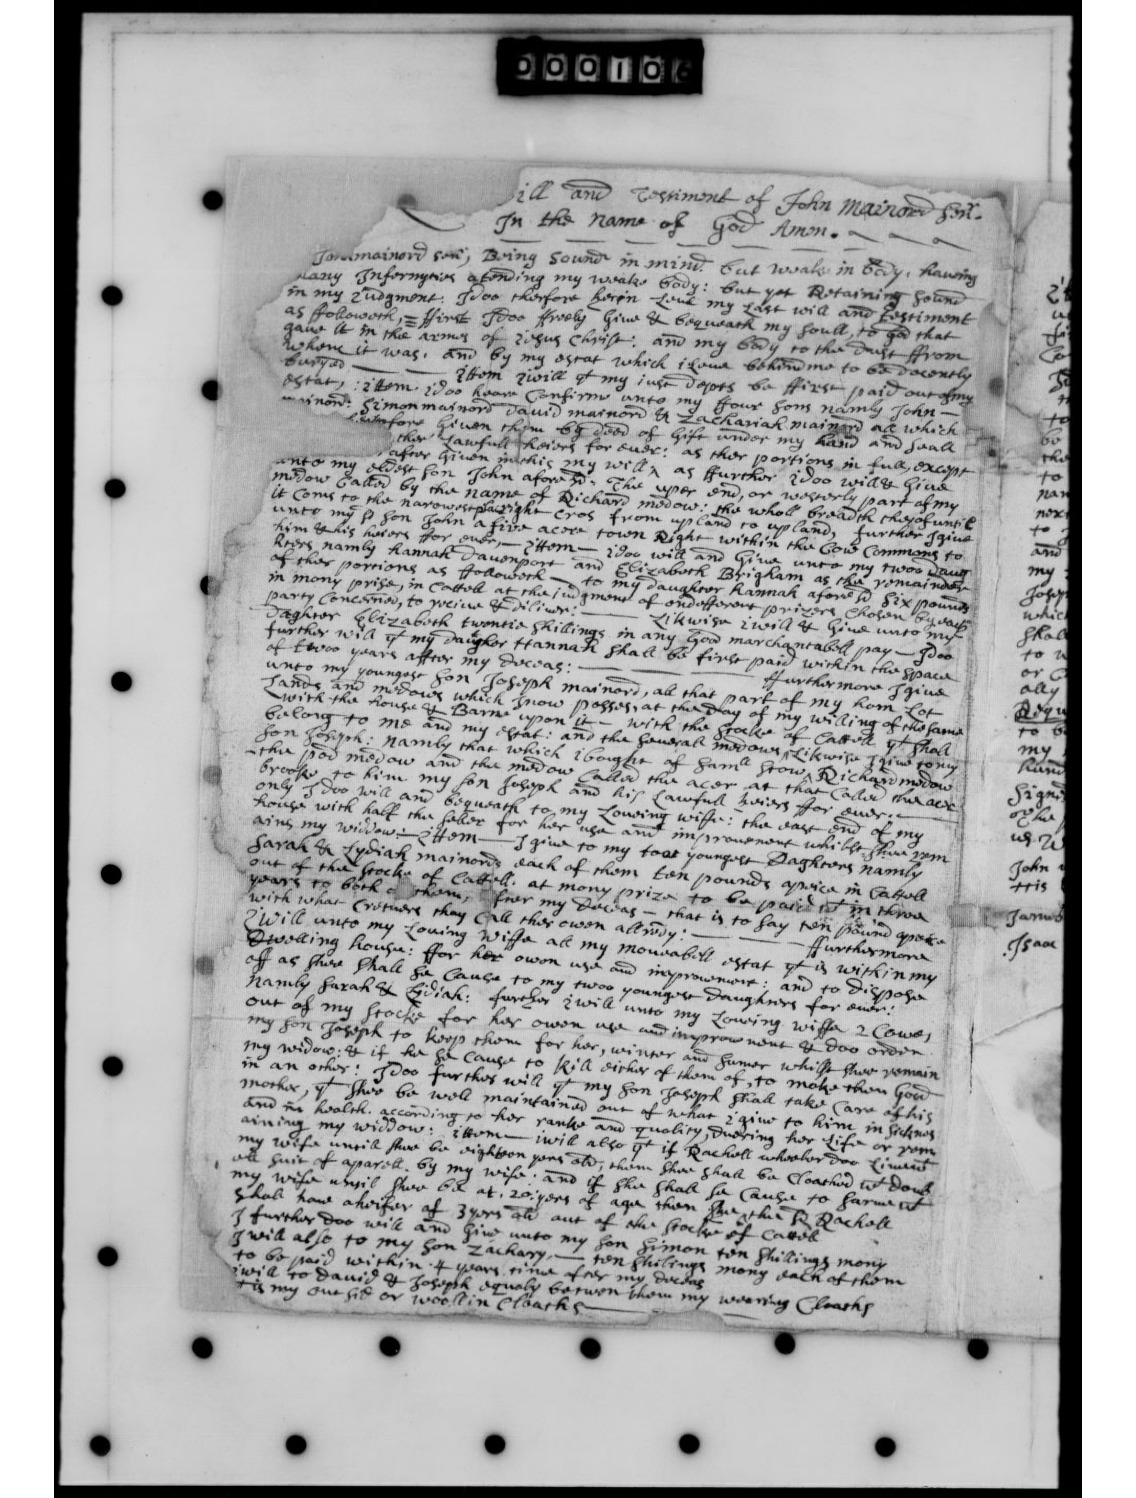 000106
ill and Testiment of John Mainord senr.
In the name of God Amen.
John mainord senr, Being Sound in mind but weake in body: having
many Infermyties atending my weake body: but yet Retaining Sound
in my Judgment. I doo therfore herin Leve my Last will and testiment
as ffolloweth, = ffirst I doo ffreely Give & bequeath my Soull, to god that
gave it in the armes of Jesus Christ: and my body to the dust ffrom
whence it was, and by my estat which i Leve behind me to be decently
buryed Ittem I will yt my just depts be ffirst paid out of my
estat, : ittem. idoo heare Confirme unto my ffour Sons namly John
mainord: Simon mainord David mainord & Zachariah mainord all which
given them by deed of Gift under my hand and Seall
ther Lawfull heiers for ever: as ther portions in full, except
after Given in this my will as ffurther idoo will & Give
unto my eldest Son John aforesd: The uper end, or westerly part of my
medow Called by the name of Richard medow: the wholl breadth therof untill
it Coms to the narowest place right Cros from upland to upland, further I give
unto my sd Son John a five acere town Right within the Cow Commons to
him & his heiers ffor ever, Ittem idoo will and Give unto my twoo daug
hters namly Hannah Davenport and Elizabeth Brigham as the remainder
of ther portions as ffolloweth to my daughter hannah aforesd Six pounds
in mony prise, in Cattell at the judgment of ondefferent prizers Chosen by each
party Concerned, to receive & diliver: Likwise i will & Give unto my
daghter Elizabeth twentie Shillings in any Good marchantabell pay I doo
further will yt my daughter Hannah Shall be first paid within the Space
of twoo years affter my deceas: ffurthermore I give
unto my youngest Son Joseph mainord, all that part of my hom Lot
Lands and medows which I now posses, at the Day of my willing of the same
with the house & Barne upon it with the Stocke of Cattell yt Shall
belong to me and my estat: and the severall medows Likwise I give to my
Son Joseph: namly that which i bought of Samll Stow, Richard medow
the pod medow and the medow Called the acer at that Called the acer
brooke to him my Son Joseph and his Lawfull heiers ffor ever.
only I doo will and bequeath to my Loveing wiffe: the east end of my
house with half the seller for her use and improvement whilst Shee rem
ains my widdow: Ittem I give to my twoo youngest Daghters namly
Sarah & Lydiah mainord: each of them ten pounds apeice in Cattell
out of the Stocke of Cattell. at mony prize to be paid in three
years to both of them, after my Deceas that is to Say ten pound apeice
with what Cretuers thay Call ther owen allredy: ffurthermore
I Will unto my Loving Wiffe all my moveabell estat yt is within my
Dwelling house: ffor her owen use and improvement: and to dispose
off as Shee Shall se Cause to my twoo youngest daughters for ever:
Namly Sarah & Lydiah: further i will unto my Loving wiffe 2 Cows,
out of my Stocke for her owen use and improwment & doo order
my Son Joseph to keep them for her, winter and Sumer whilst Shee remain
my widow: & if he se Cause to kill either of them of, to make them Good
in an other: I doo further will yt my Son Joseph Shall take Care of his
mother, yt Shee be well maintained out of what i give to him in Sicknes
and in health. according to her ranke and quality, duering her Life or rem
aining my widdow: ittem iwill also yt if Rachell wheeler doo Live wt
my wife untill Shee be eighteen yers old, them Shee Shall be Cloathed wt doub
ell Suit of aparell. by my wife: and if She Shall Se Cause to Sarve wt
my wife untill Shee be at. 20: yers of age then Shee the sd Rachell
Shall have aheifer of 3 yers old out of the Stocke of Cattell
I further doo will and Give unto my Son Simon ten Shillings mony
I will also to my Son Zachary, ten Shilings mony each of them
to be paid within 4 years time after my deceas
iwill to David & Joseph equaly betwen them my wearing Cloaths
tis my out Sid or woollin Cloaths